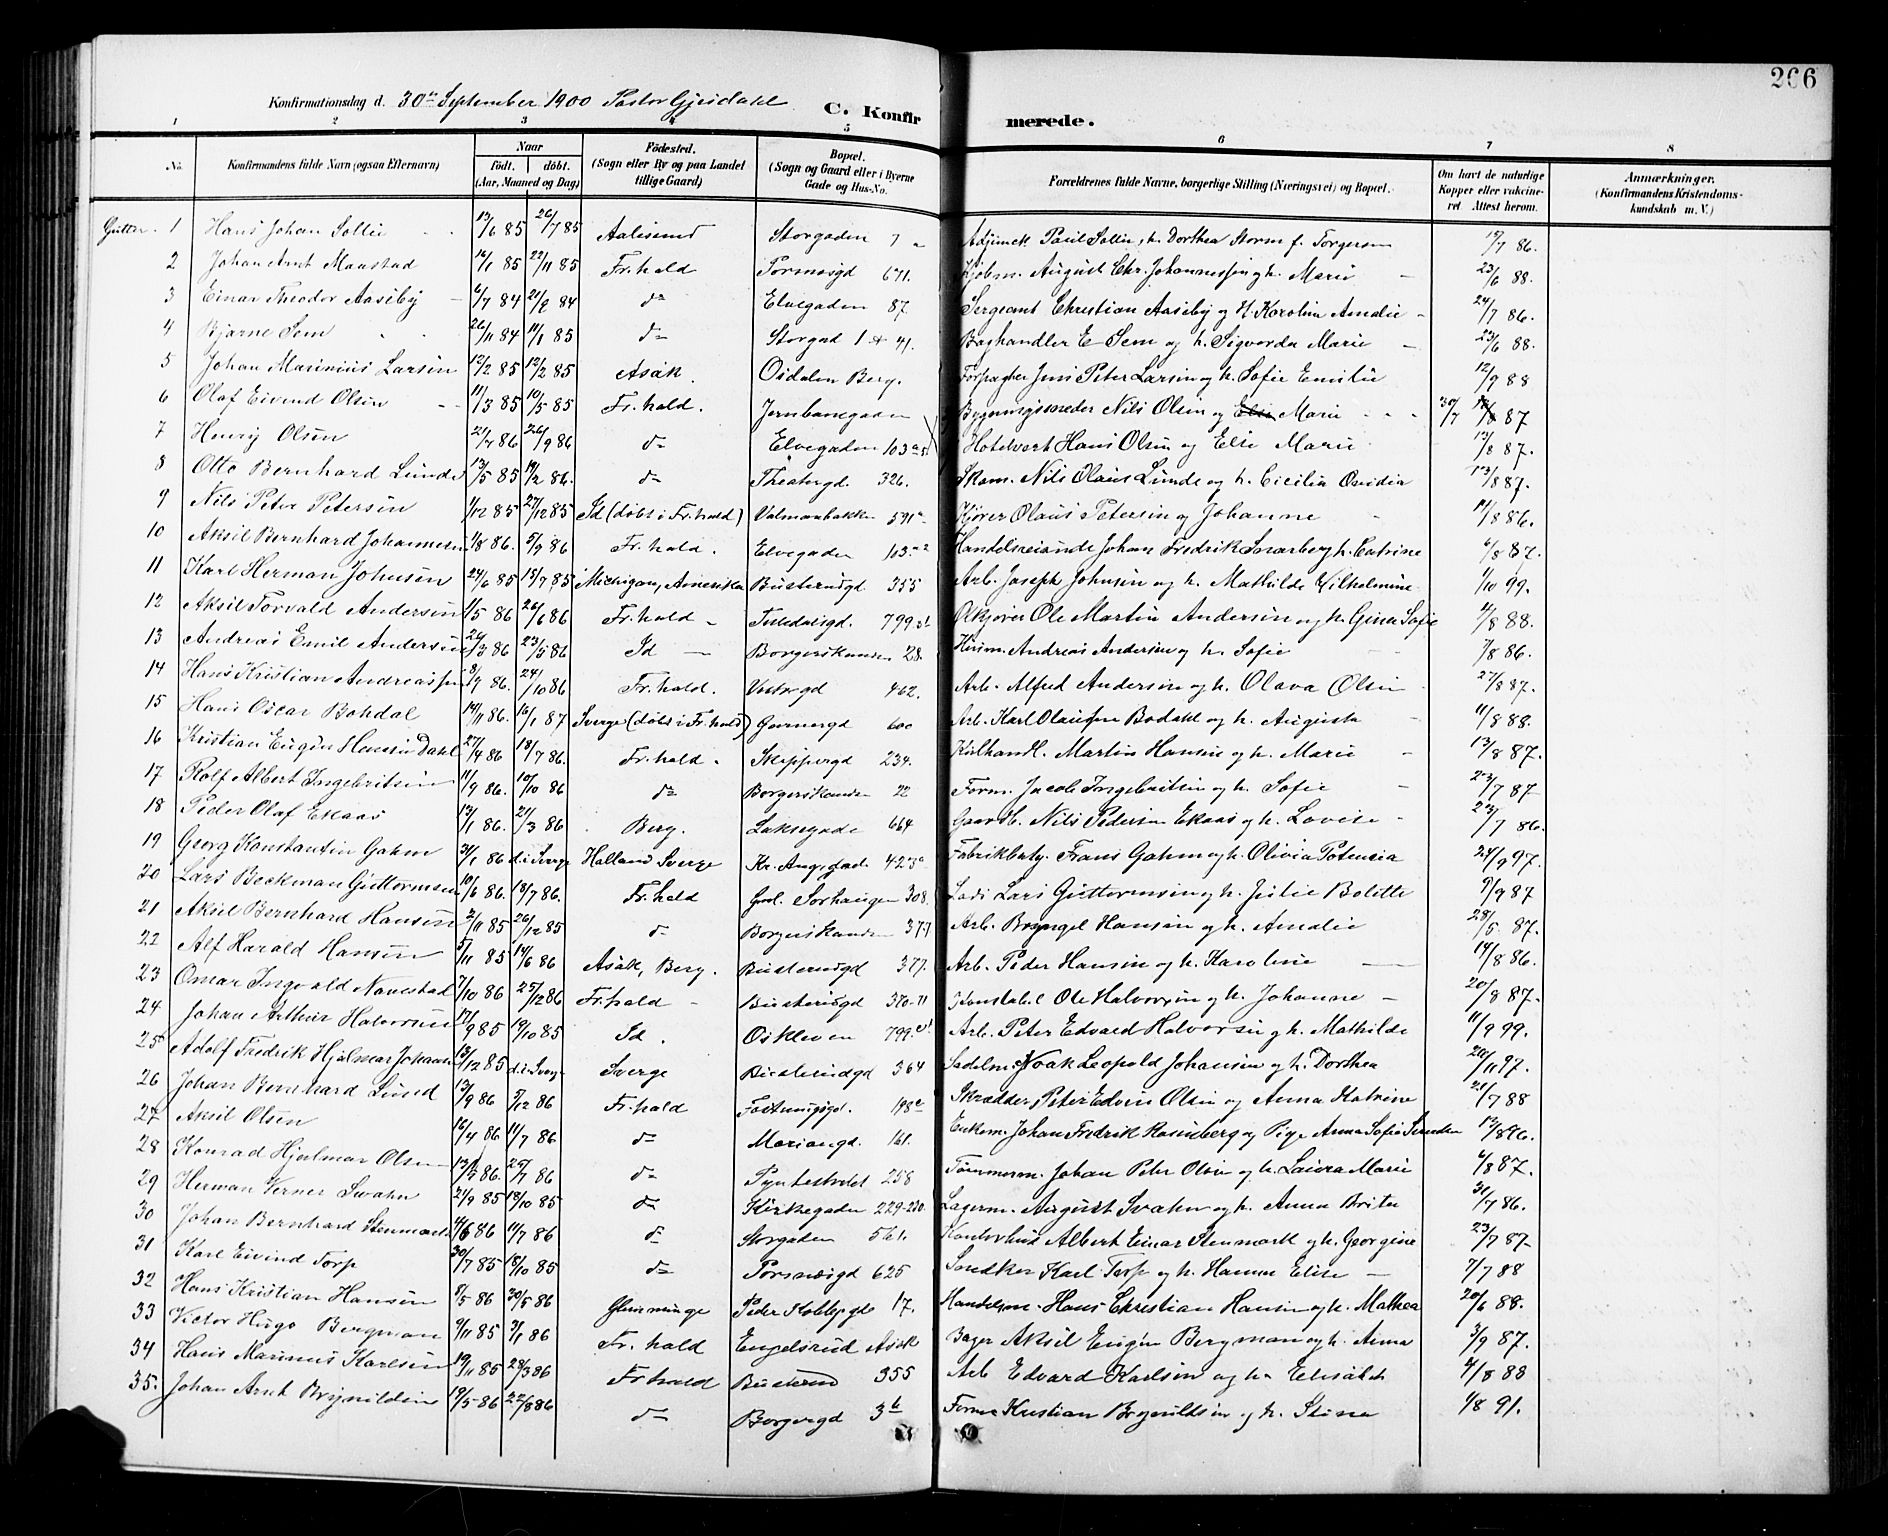 206
Konfirmationsdag d. 30te September 1900 Pastor Gjesdahl
C. Konfirmerede.
1 2 3 4 5 6 7 8
No. Konfirmandens fulde Navn (ogsaa Efternavn) Naar født. døbt. (Aar, Maaned og Dag) Fødested. (Sogn eller By og paa Landet tillige Gaard) Bopæl. (Sogn og Gaard eller i Byerne Gade og Hus-No. Forældrenes fulde Navne, borgerlige Stilling (Næringsvei) og Bopæl. Om havt de naturlige Kopper eller vakcineret. Attest herom. Anmærkninger. (Konfirmandens Kristendomskundskab m. V.)
Gutter. 1 Hans Johan Sollie 13/6 85 26/7 85 Aalesund Storgaden 7 a Adjunct Paul Sollie, h. Dorthea Storm f. Torgersen 15/7 86.
2 Johan Arnt Maastad 16/1 85 22/11 85 Fr.hald Torsnæsgd 671. Kjøbm. August Chr. Johannessen g h. Marie 23/6 88.
3 Einar Theodor Aaseby 6/7 84 21/9 84 do Elvegaden 87. Sergeant Christian Aaseby og H. Karoline Amalie 24/7 86.
4 Bjarne Sem 26/11 84 11/1 85 do Storgad 1 & 41. Boghandler E Sem og h. Sigvarda Marie 23/6 88.
5 Johan Marinius Larsen 12/2 85 12/2 85 Asak. Osdalen Berg. Forpagter Jens Peter Larsen og h. Sofie Emilie 12/9 88
6 Olaf Eivend Olsen 11/3 85 10/5 85 Fr.hald. Jernbanegaden Bygningssneder Nils Olsen og Elise Marie 30/7 87
7 Henry Olsen 21/7 86 26/9 86 do Elvegaden 103 a Hotelvert Hans Olsen og Else Marie 12/8 87.
8 Otto Bernhard Lunde 13/5 85 14/2 86. do Theatergd. 326. Skom. Nils Olaus Lunde og h. Cicilia Ovidia 13/8 87.
9 Nils Peter Petersen 1/12 85 27/12 85 Id (døbt i Fr.hald) Valmanbakken 591 a Kjører Olaus Petersen og Johanne 11/8 86.
10 Aksel Bernhard Johannesen 1/8 86. 5/9 86 Fr.hald. Elvegaden 103 Handelsreisende Johan Fredrik Snarberg h. Catrine 6/8 87.
11 Karl Herman Johnsen 24/6 85 15/7 85 Michigan, Amerika Busterudgd 355 Arb. Joseph Johnsen og h. Mathilde Wilhelmine 1/10 99.
12 Aksel Torvald Andersen 1/5 86 26/6 86 Fr.hald Tistedalsgd. 799 Ølkjører Ole Martin Andersen og h. Gina Sofie 4/8 88.
13 Andreas Emil Andersen 26/3 86 23/5 86 Id Borgerskansen 28. Andreas Andersen og h. Sofie 7/8 86.
14 Hans Kristian Andreassen 8/7 86. 24/10 86 Fr.hald. Vestregd 462. Arb. Alfred Andersen og h. Olava Olsen 27/8 87.
15 Hans Oscar Bohdal 14/11 86. 16/1 87 Sverge (døbt i Fr.hald) Garvergd 600 Arb. Karl Olaussen Bodahl og h. Augusta 11/8 88.
16 Kristian Eugén Hansen Dahl 27/4 86 18/7 86. Fr.hald. Skippergd 234. Kulhandl. Martin Hansen og h. Marie 13/8 87.
17 Rolf Albert Ingebritsen 11/9 86. 10/10 86 do Borgerskansen 22 Form. Jacob Ingebritsen og h. Sofie 23/7 87
18 Peder Olaf Ekaas 13/1 86. 21/3 86 Berg. Laksegade 664 Gaardb. Nils Pedersen Ekaas og h. Lovise 22/7 86.
19 Georg Konstantin Gahm 31/1 86 d. i Sverge Halland Sverge Kr. Aug. gad. 423 a Fabrikbesty. Frans Gahm og h. Olivia Potencia 24/9 97.
20 Lars Beckman Guttormsen 10/6 86. 18/7 86. Fr.hald Gml. Sorhaugen 308. Lods Lars Guttormsen og h. Julie Bolette 9/9 87
21 Aksel Bernhard Hansen 2/11 85 26/12 85 do Borgerskansen 377 Arb. Bryngel Hansen og h. Amalie 28/5 87.
22 Alf Harald Hansen 5/11 85 14/6 86 Asak, Berg. Busterudgd 377. Arb. Peder Hansen og h. Karoline 14/8 86.
23 Omar Ingvald Navestad 7/10 86 25/12 86 Fr.hald Busterudgd 370-71 Konstabel Ole Halvorsen og h. Johanne 20/8 87.
24 Johan Arthur Halvorsen 17/9 85 19/10 85 Id. Oskleven 799. Arb. Peter Edvard Halvorsen g h. Mathilde 11/9 99.
25 Adolf Fredrik Hjalmar Johansen 13/12 85 d. i Sverge Sverge Busterudgd 364 Sadelm. Noak Leopold Johansen og h. Dorthea 20/11 97.
26 Johan Bernhard Lund 13/9 86 5/12 86 Fr.hald Fæstningsgd. 198 a Skrædder Peter Edvin Olsen og Anna Katrine 21/7 88
27 Aksel Olsen 16/4 86 11/7 86 do Mariangd. 161. Enkem. Johan Fredrik Rosenberg og Pige Anna Sofie Svendsen 13/8 96.
28 Konrad Hjalmar Olsen 13/3 86. 25/7 86 do 258 Tømmerm. Johan Peter Olsen og h. Laura Marie 6/8 87.
29 Herman Verner Swahn 21/9 85 18/10 85 do Kirkegaden 229-230. Lagerm. August Svahn og h. Anna Brita 31/7 86.
30 Johan Bernhard Stenmark 4/6 86 11/7 86 do Storgaden 561. Kontorbud Albert Einar Stenmark og h. Georgine 23/7 87
31 Karl Eivind Torp 30/7 85 18/10 85 do Torsnæsgd 625 Snedker Karl Torp og h. Hanna Elise 7/7 88
32 Hans Kristian Hansen 8/5 86 30/5 86 Glemminge Peder Kolbjgd 17. Handelsm. Hans Christian Hansen og h. Mathea 20/6 88.
33 Victor Hugo Bergman 9/11 85 3/1 86 Fr. hald Engelsrud Asak Bager Aksel Eugén Bergman og h. Anna 3/9 87.
34 Hans Marinus Karlsen 19/11 85 28/3 86 Fr.hald Busterud 355 Arb Edvard Karlsen og h. Elisabet 4/8 88
35. Johan Arnt Brynildsen 19/5 86 22/8 86 do Borgergd 3 b Form. Kristian Brynildsen og h. Stina 1/8 91.